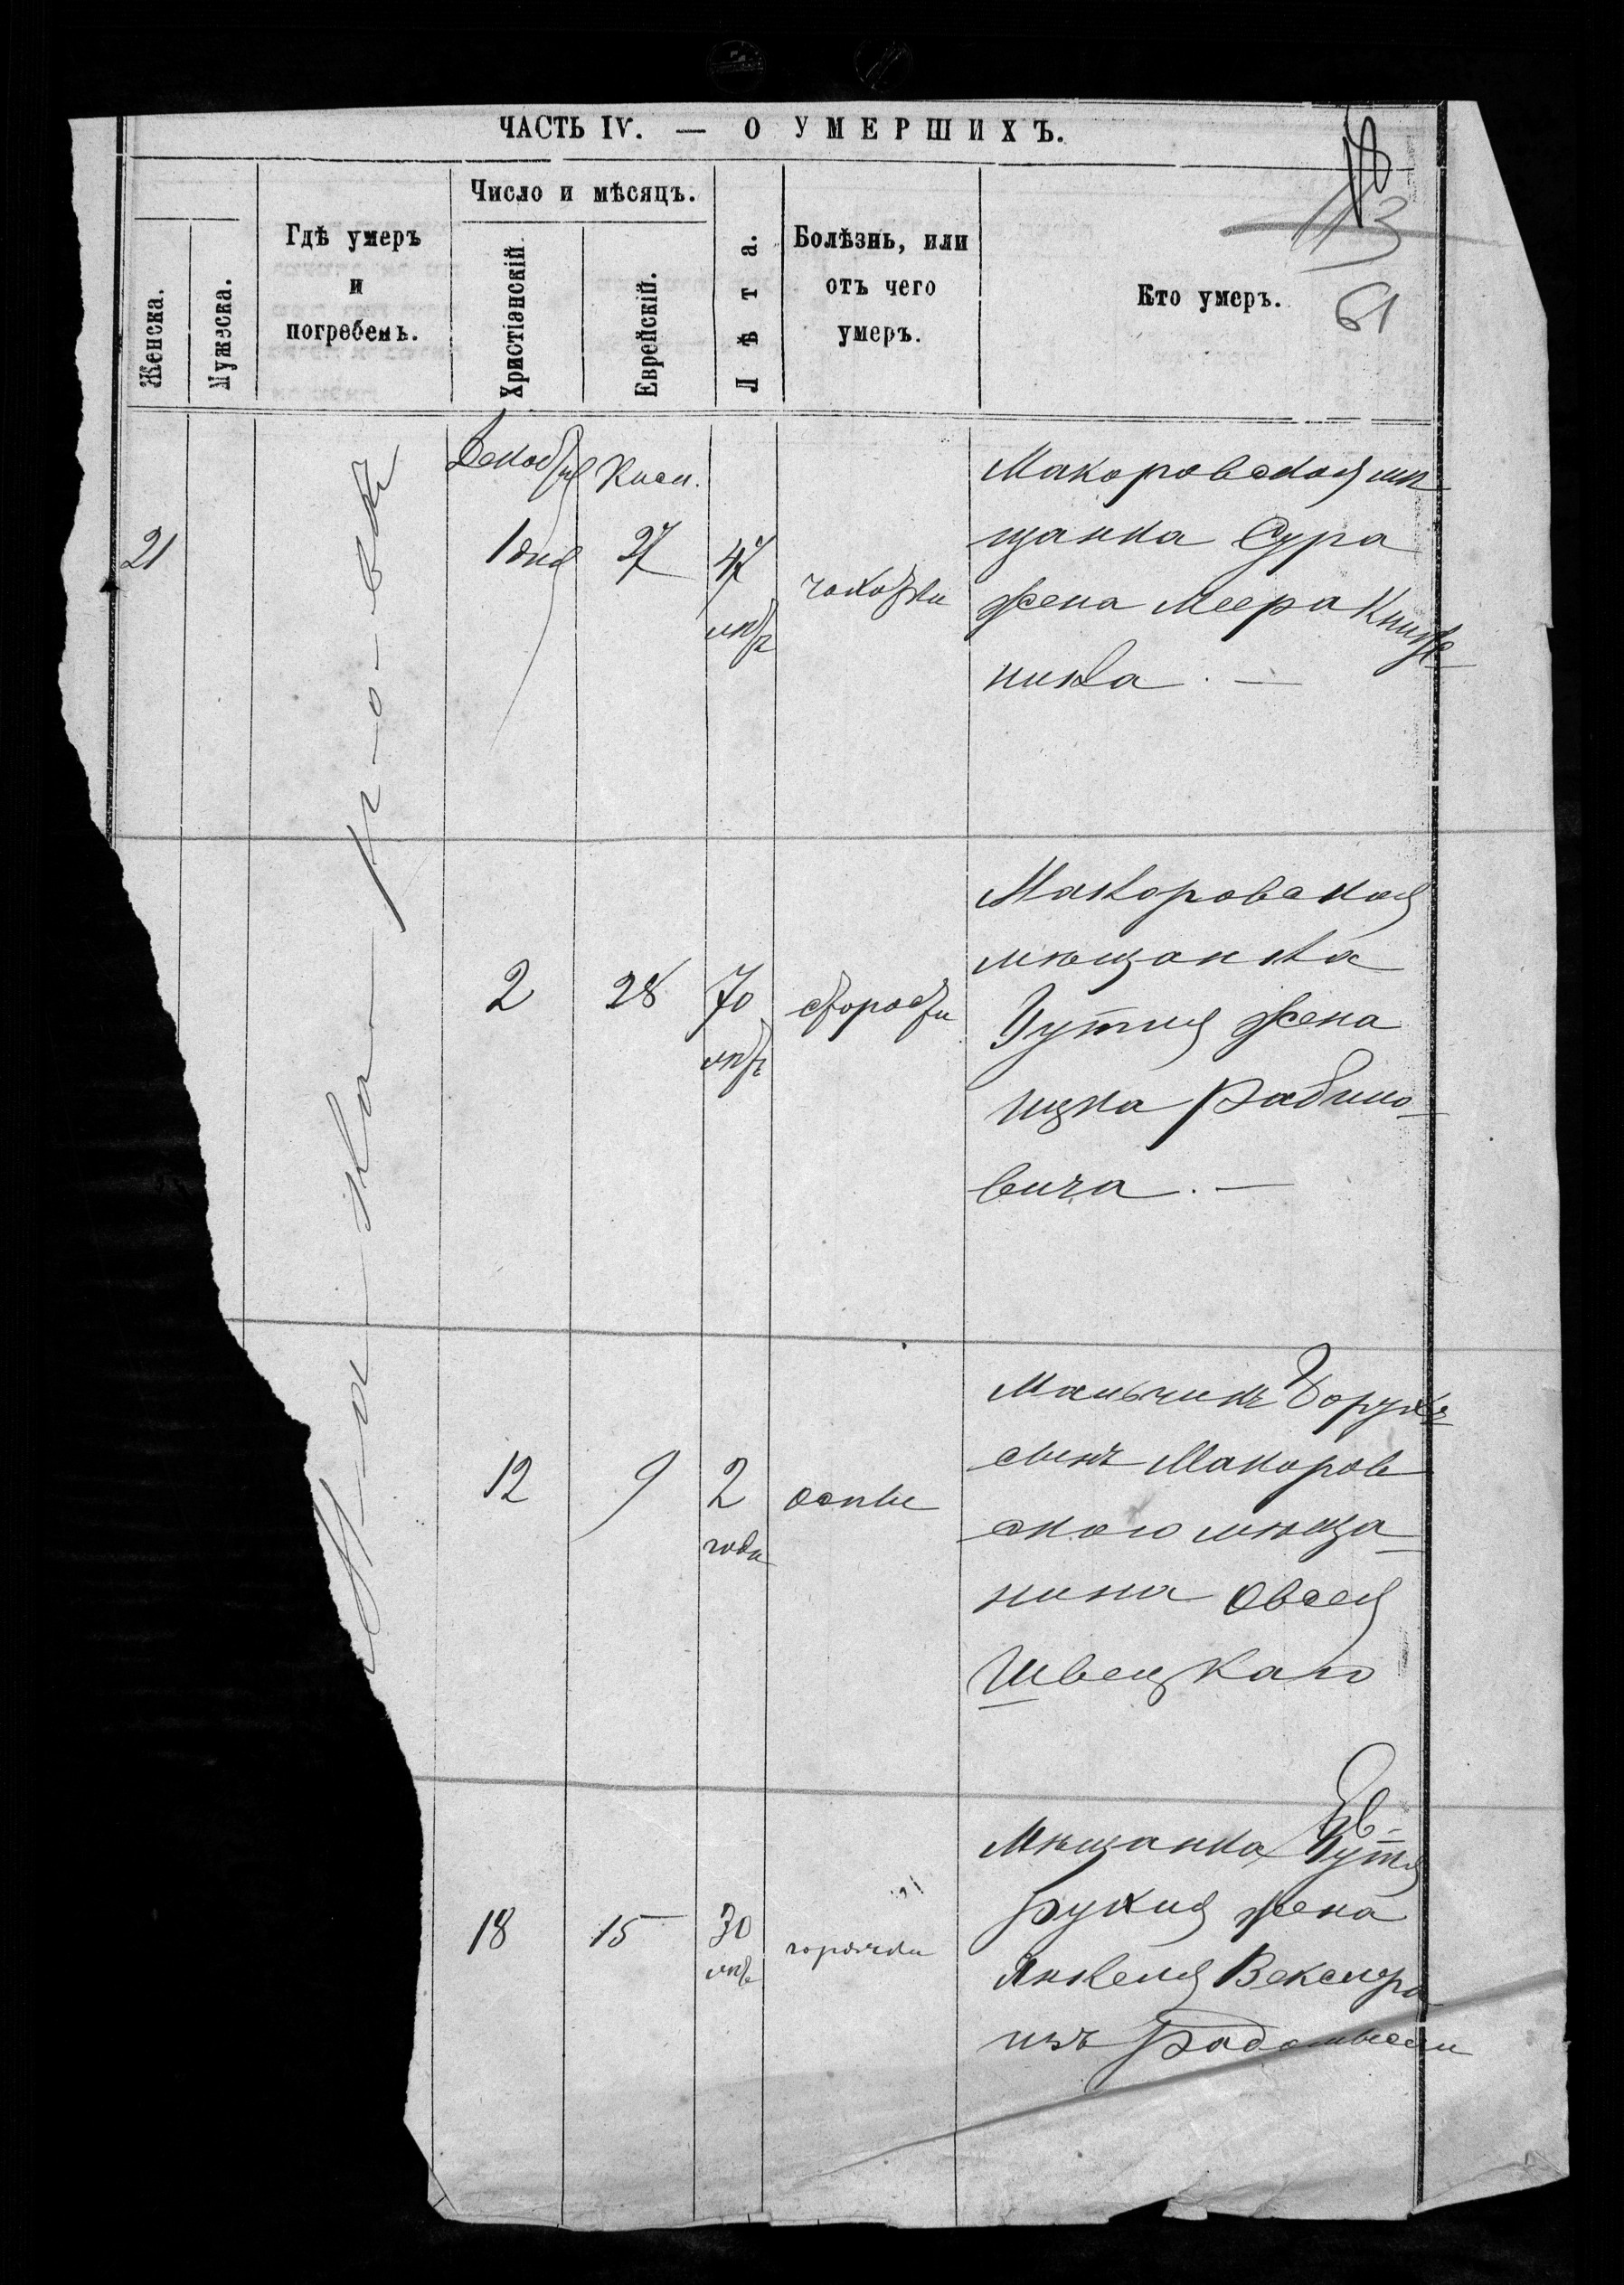 ЧАСТЬ IV. — О УМЕРШИХЪ.
Женска.
Мужеска.
Гдѣ умеръ
и
погребенъ.
Число и мѣсяцъ.
Христіанскій.
Еврейскій.
Лѣта.
Болѣзнь, или
отъ чего
умеръ.
Кто умеръ.
113
61
Декабря
Кисл.
21
1 дня
27
47
лѣтъ
чахотки
Макаровская мѣ
щанка Сура
жена Меера Книж
ника. —
2
28
70
лѣтъ
старости
Макаровская
мѣщанка
жена
Ицка Рабино-
вича. —
12
9
2
года
оспы
Мальчикъ Борухъ
сынъ Макаров
скаго мѣща-
нина Овсея
Швецкаго
18
15
30
лѣтъ
горячки
Мѣщанка
жена
Янкеля Векслера
изъ